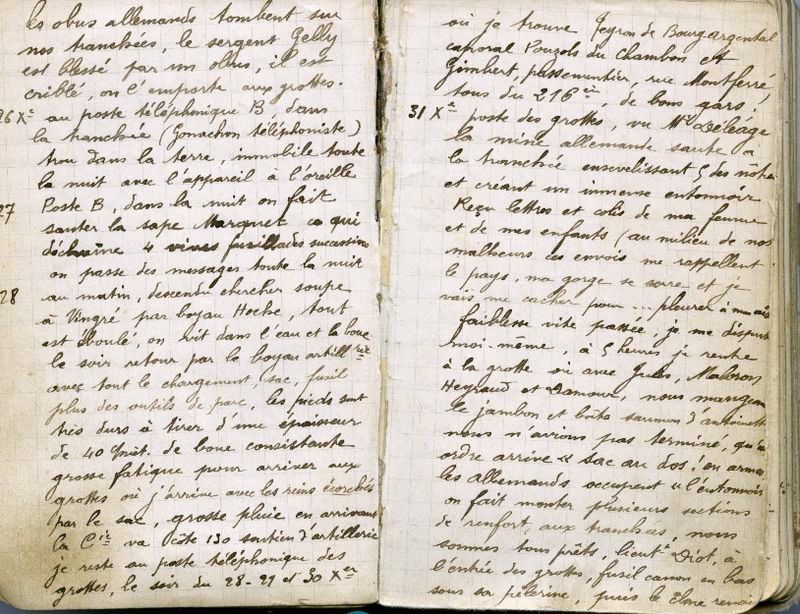 les obus allemands tombent sur
nos tranchées, le sergent Gelly
est blessé par un obus, il est
criblé, on l'emporte aux grottes.
26 Xe au poste téléphonique B dans
la tranchée (Gonachon téléphoniste)
trou dans la terre, immobile toute
la nuit avec l'appareil à l'oreille
27 Poste B, dans la nuit on fait
sauter la sape Marguet ce qui
déchaîne 4 vives fusillades successives
on passe des messages toute la nuit
28 au matin, descendu chercher soupe
à Vingré par boyau Hoche, tout
est éboulé, on vit dans l'eau et la boue
le soir retour par le boyau artillrie
avec tout le chargement, sac, fusil
plus des outils de parc, les pieds sont
très durs à tirer d'une épaisseur
de 40 de boue consistante
grosse fatigue pour arriver aux
grottes où j'arrive avec les reins écorchés
par le sac, grosse pluie en arrivant
la Cie va côte 130 soutien d'artillerie
je reste au poste téléphonique des
grottes, le soir du 28-29 et 30 Xer
où je trouve Peyron de Bourg-argental
caporal Pouzols du Chambon et
Gimbert, passementier, rue Montferré,
tous du 216e, de bons gars!
31 Xe poste des grottes, vu Mel Déléage
la mine allemande saute à
la tranchée ensevelissant 5 des nôtres
et créant un immense entonnoir
Reçu lettres et colis de ma femme
et de mes enfants (au milieu de nos
malheurs ces envois me rappellent
le pays, ma gorge se serre et je
vais me cacher pour ... pleurer à mon
faiblesse vite passée, je me dispute
moi-même, à 5 heures je rentre
à la grotte où avec Jules, Mabron
Heyraud et Damour, nous mangeons
le jambon et boîte saumon d'antoinette
nous n'avions pas terminé, qu'un
ordre arrive "sac au dos! en armes
les allemands occupent "l'entonnoir
on fait monter plusieurs sections
de renfort aux tranchées, nous
sommes tous prêts, lieutt Diot, à
l'entrée des grottes, fusil canon en bas
sous sa pèlerine, puis le calme